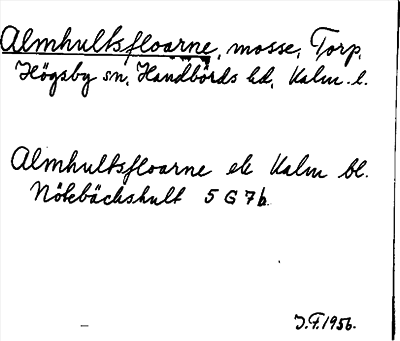 Almhultsfloarne, mosse, Torp,
Högsby sn, Handbörds hd, Kalm. l.
Almhultsfloarne ek Kalm bl.
Nötebäckshult 5 G 7 b
J.F. 1956.